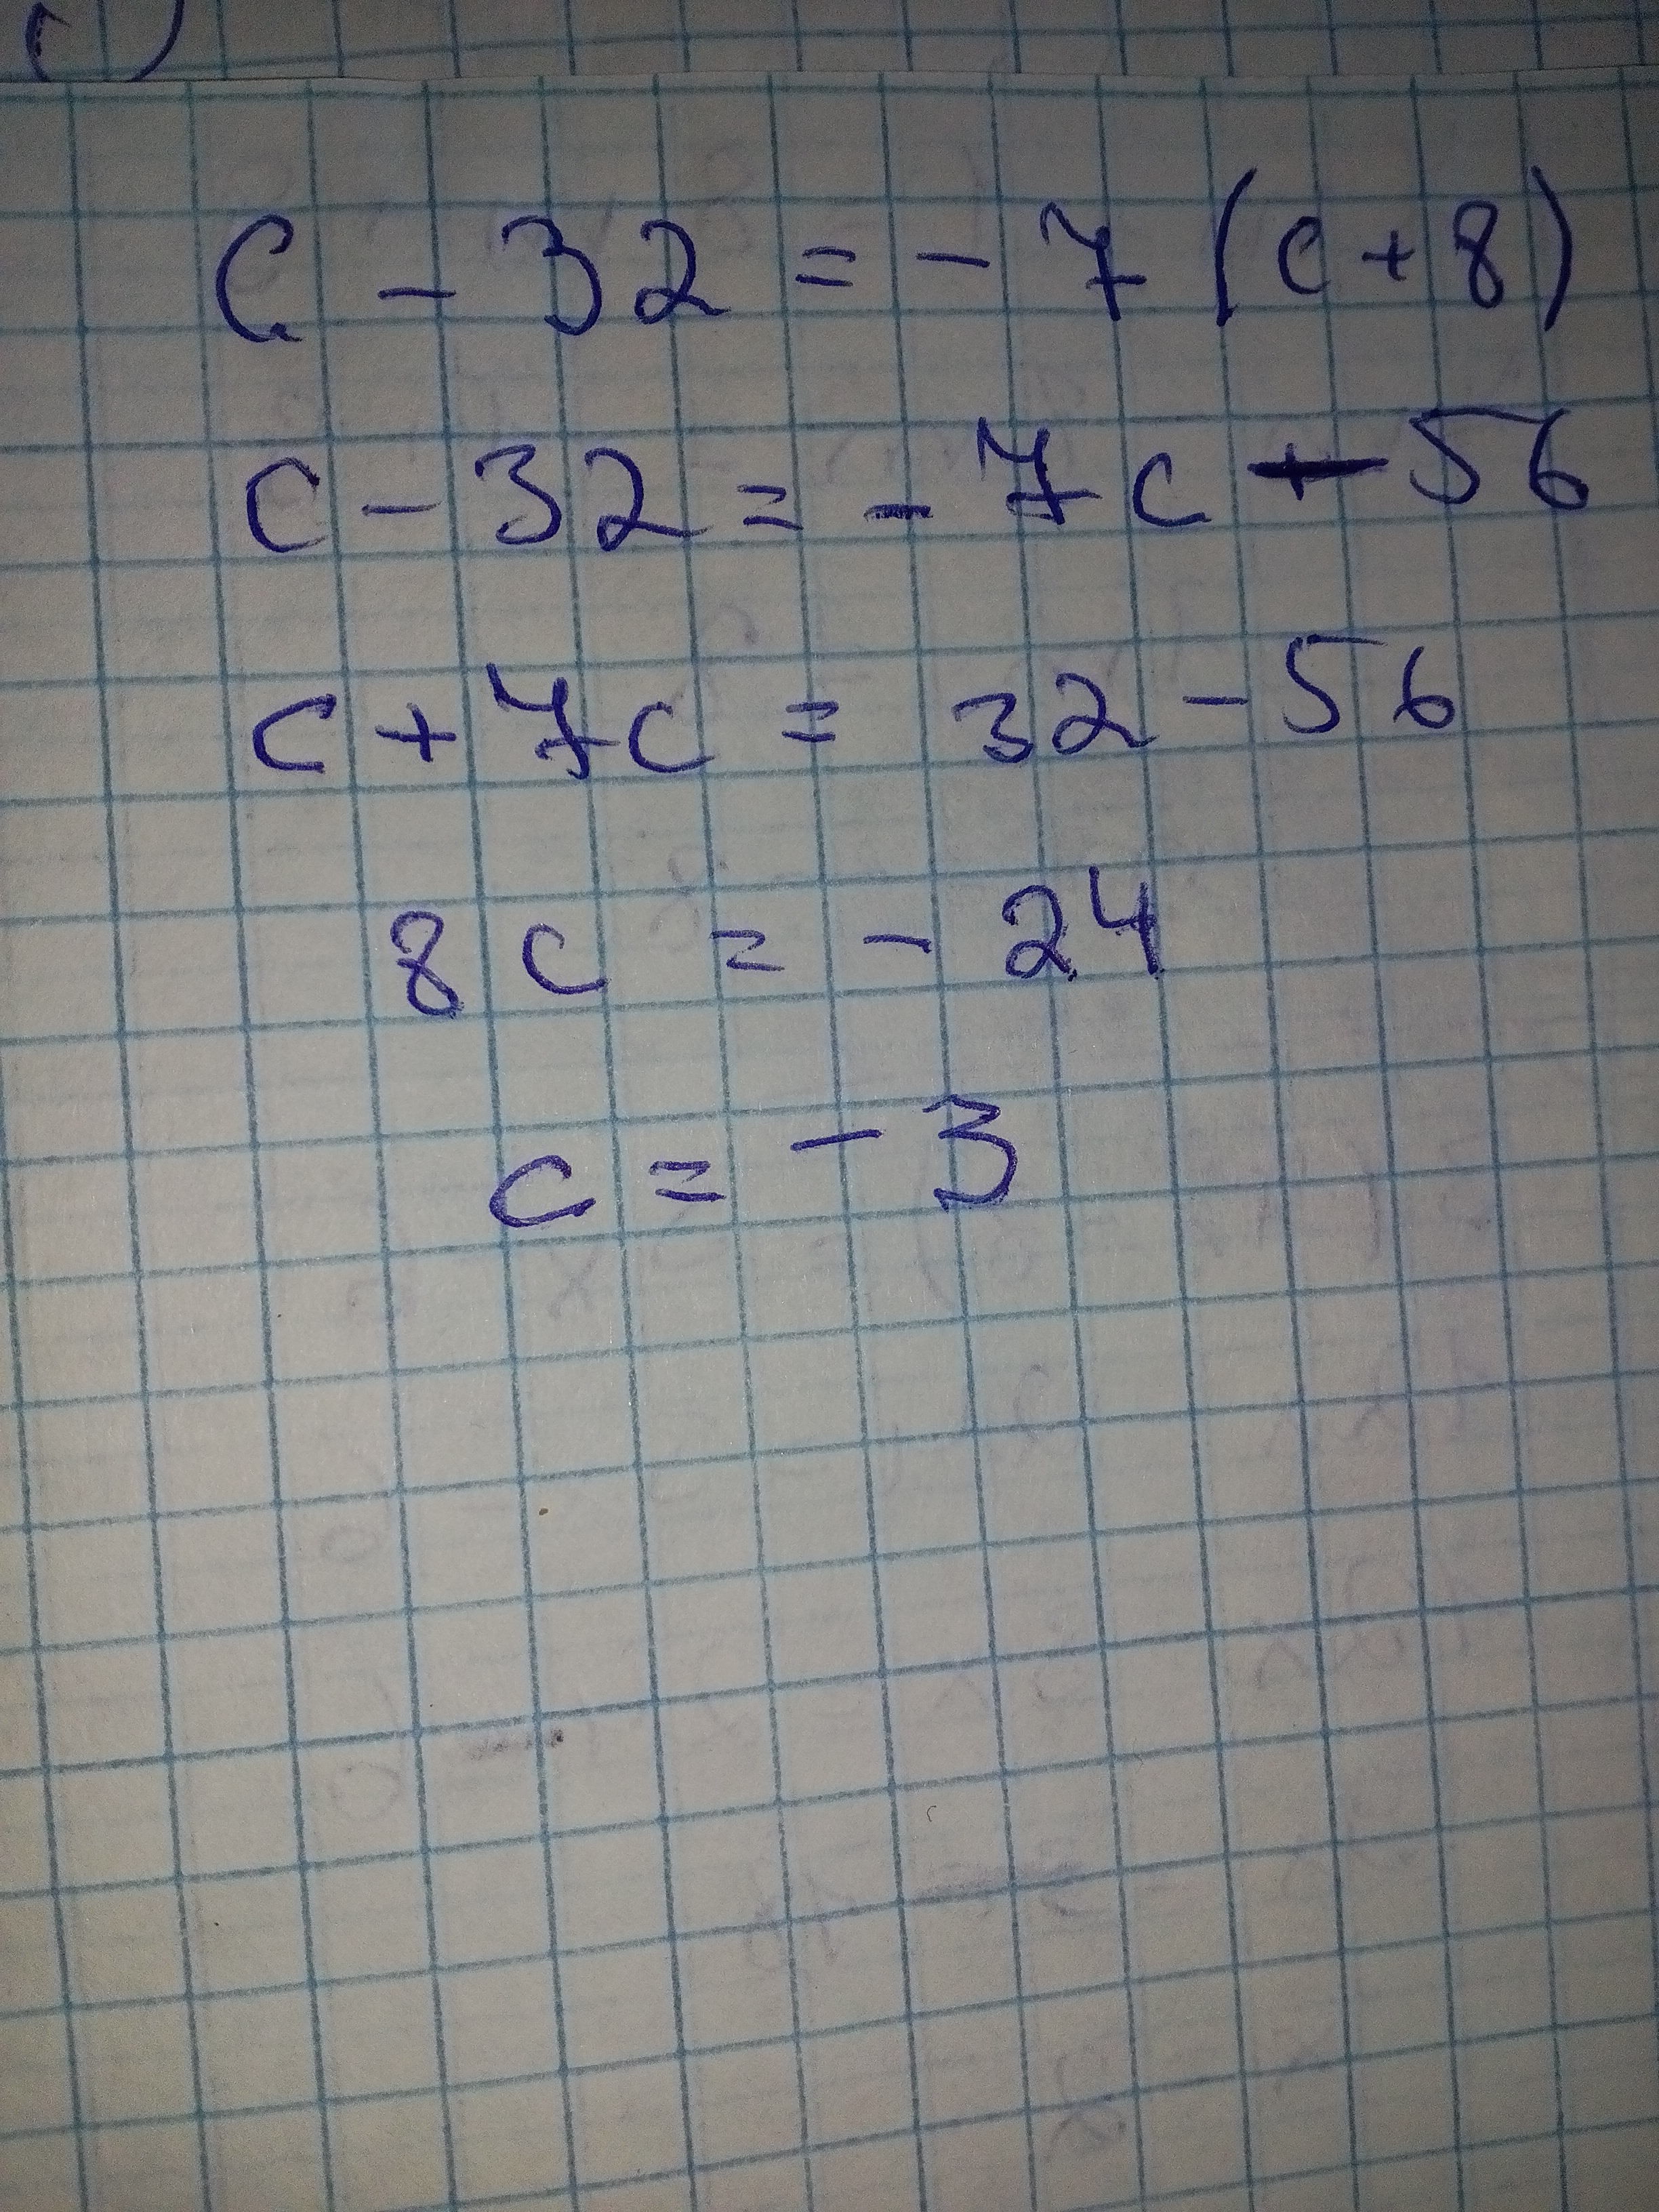 c - 32 = - 7 (c + 8)
c - 32 = - 7c - 56
c + 7c = 32 - 56
8c = - 24
c = - 3